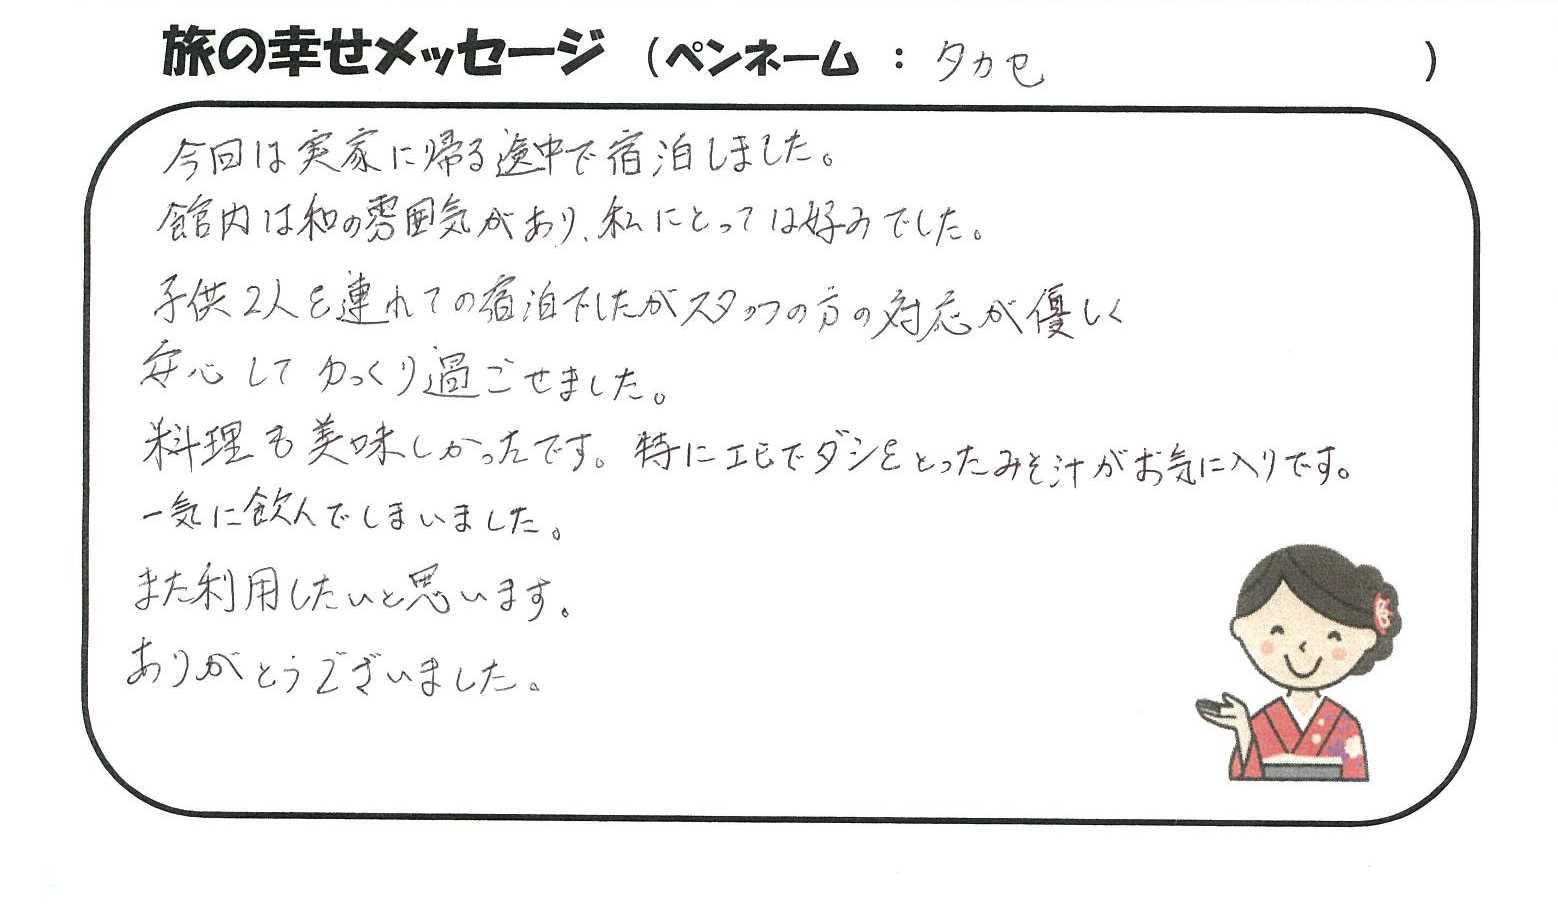 旅の幸せメッセージ (ペンネーム : タカセ )
今回は実家に帰る途中で宿泊しました。
館内は和の雰囲気があり、私にとっては好みでした。
子供2人を連れての宿泊でしたがスタッフの方の対応が優しく
安心してゆっくり過ごせました。
料理も美味しかったです。特にエビでダシをとったみそ汁がお気に入りです。
一気に飲んでしまいました。
また利用したいと思います。
ありがとうございました。